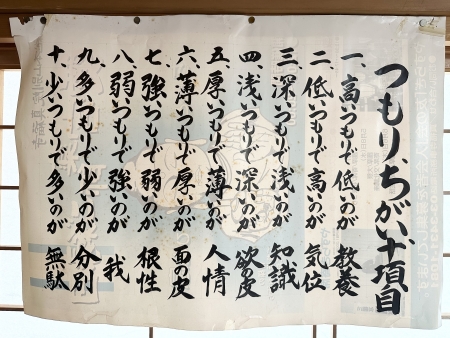 つもりちがい十項目
一、高いつもりで低いのが 教養
二、低いつもりで高いのが 気位
三、深いつもりで浅いのが 知識
四、浅いつもりで深いのが 欲の皮
五、厚いつもりで薄いのが 人情
六、薄いつもりで厚いのが 面の皮
七、強いつもりで弱いのが 根性
八、弱いつもりで強いのが 我
九、多いつもりで少いのが 分別
十、少いつもりで多いのが 無駄